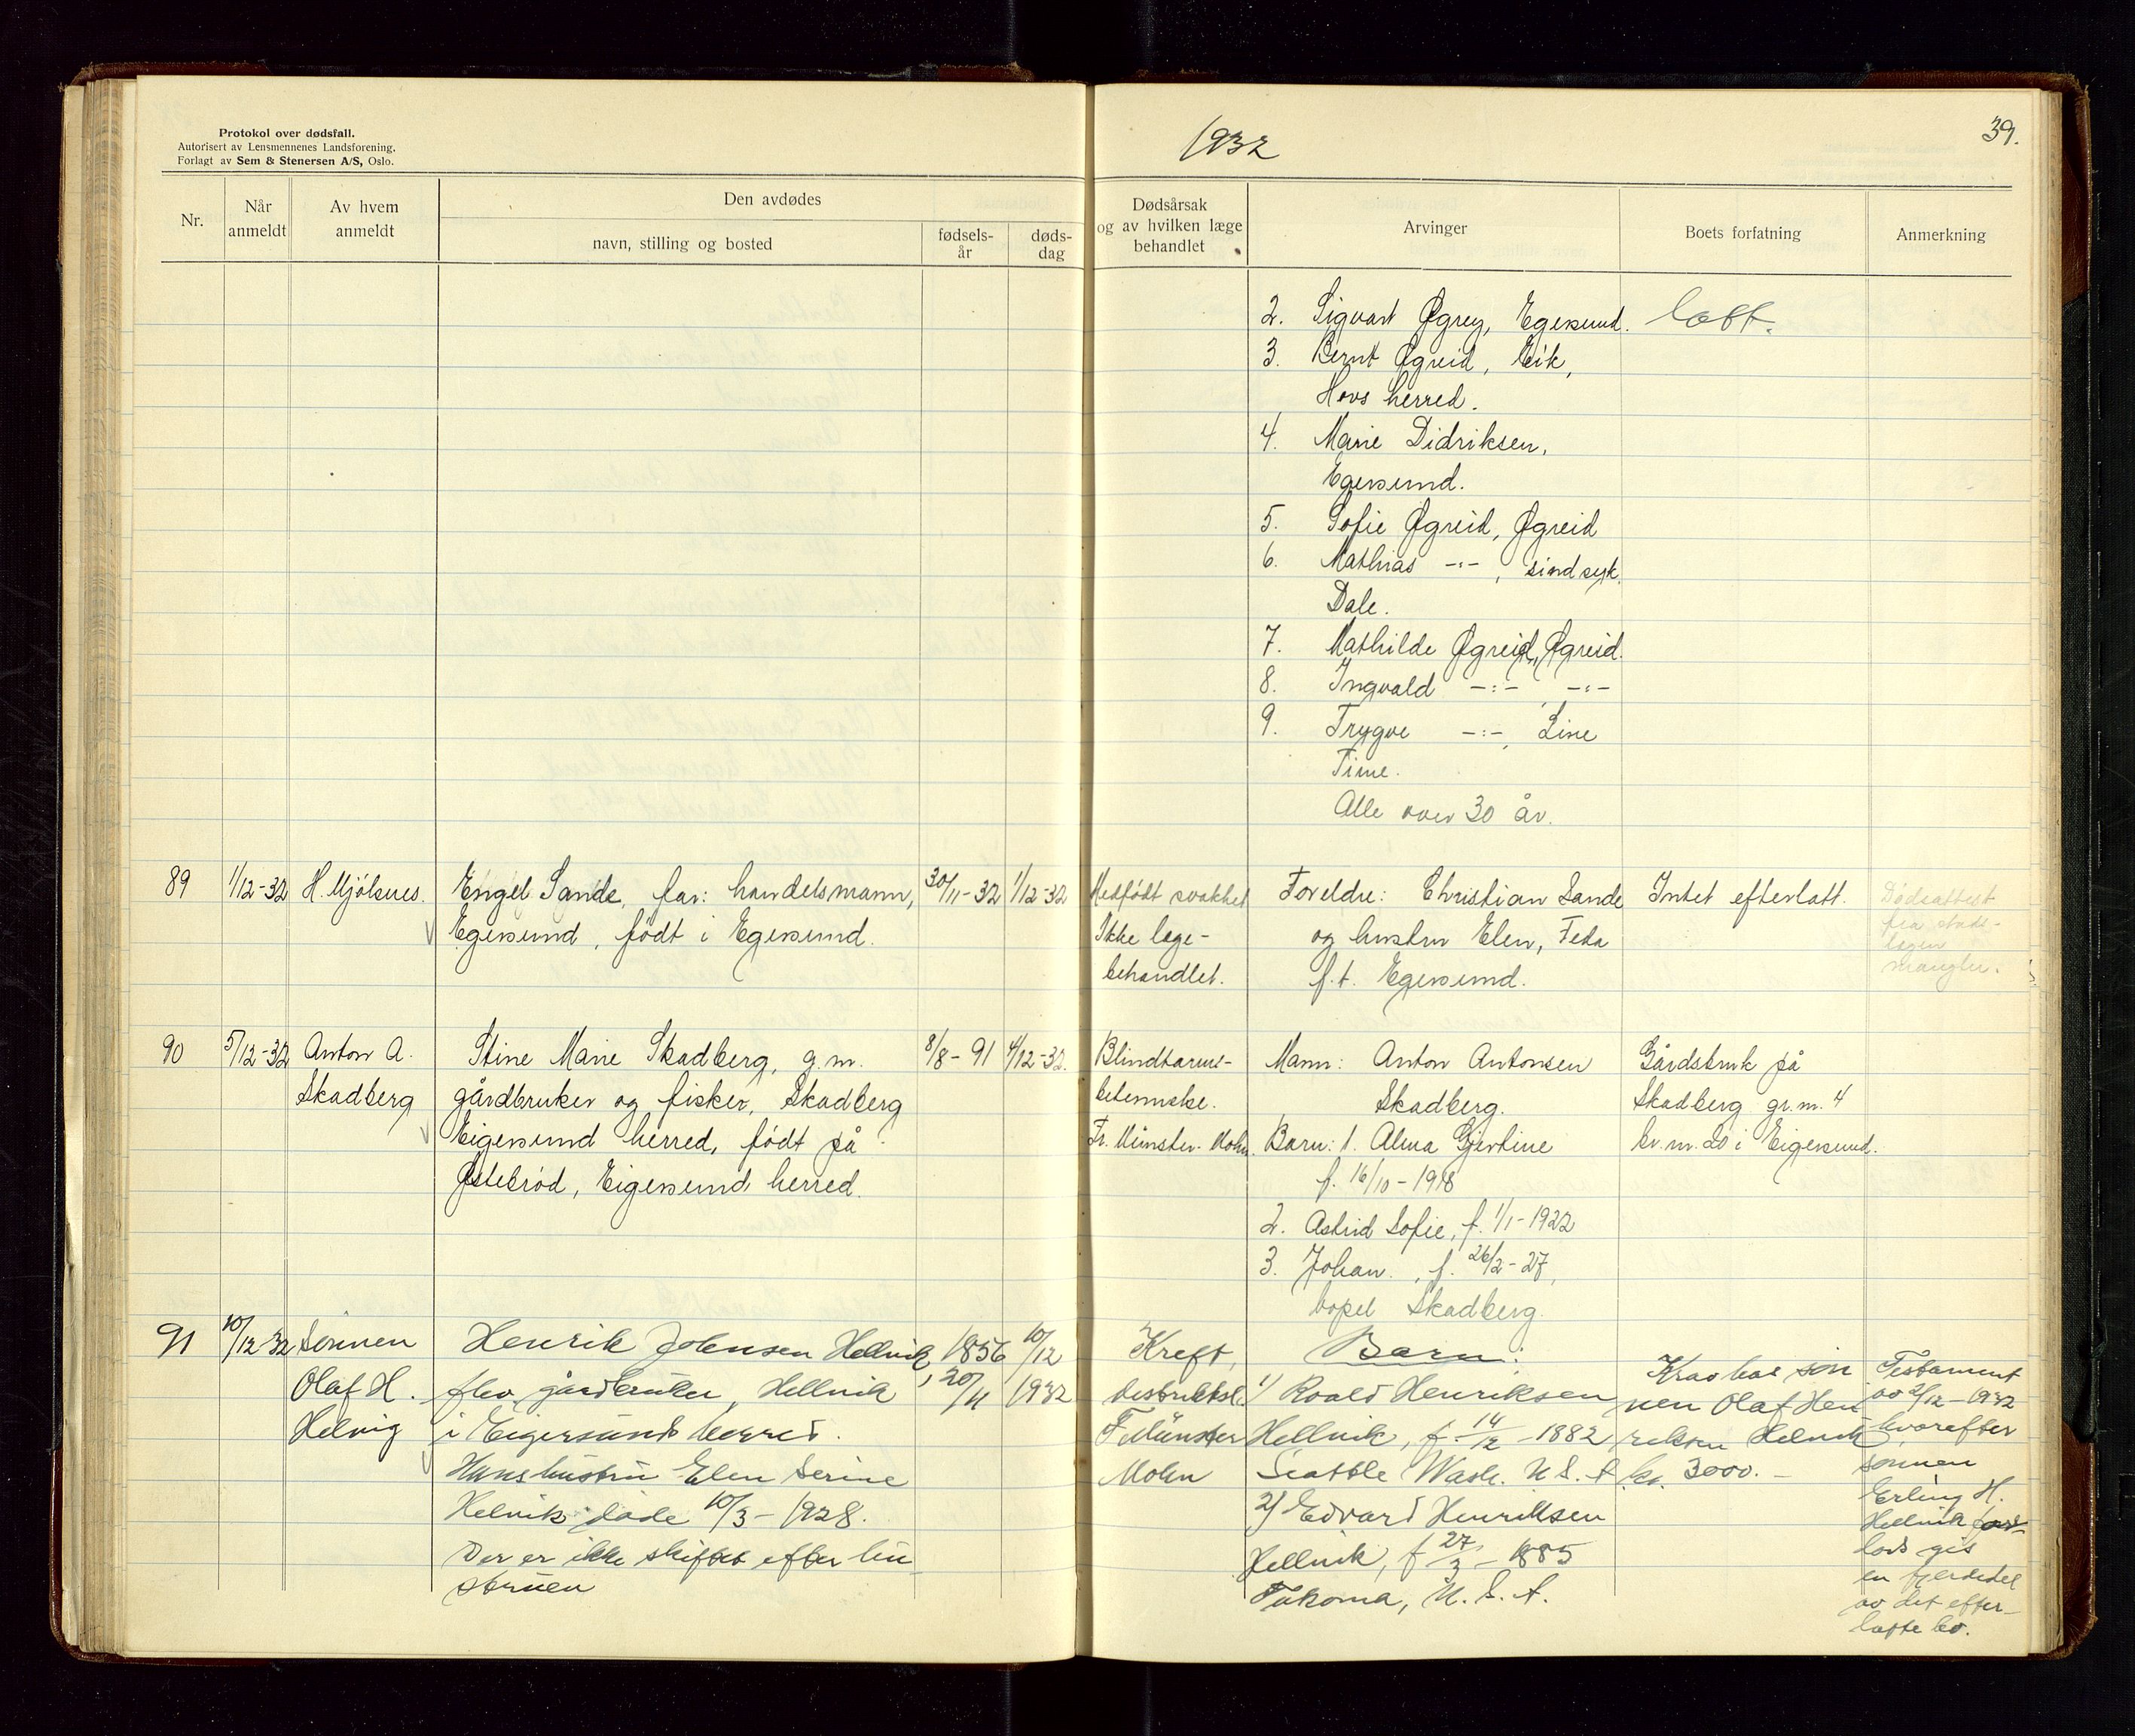 Protokol over dødsfall.
Autorisert av Lensmennenes Landsforening.
Forlagt av Sem & Stenersen A/S, Oslo.
1932
39.
Nr.
Når anmeldt
Av hvem anmeldt
Den avdødes
navn, stilling og bosted
fødsels-år
døds-dag
Dødsårsak og av hvilken læge behandlet
Arvinger
Boets forfatning
Anmerkning
2. Sigvart Øgrey, Egersund.
latt.
3. Bernt Øgreid, Eik,
Hovs herred.
4. Marie Didriksen,
Egersund.
5. Sofie Øgreid, Øgreid
6. Mathias -"-, sindsyk.
Dale.
7. Mathilde Øgreid, Øgreid.
8. Ingvald -:- -:-
9. Trygve -:-, Line
Time.
Alle over 30 år.
89
1/12-32
H. Mjölsnes.
Engel Sande, far: handelsmann,
Egersund, født i Egersund.
30/11-32
1/12-32
Medfödt svakhet
Ikke læge-
behandlet.
Foreldre: Christian Sande
og hustru Elen, Feda
f.t. Egersund.
Intet efterlatt.
Dødsattest
fra stads-
lægen
mangler.
90
5/12-32
Anton A.
Skadberg
Stine Marie Skadberg, g.m.
gårdbruker og fisker, Skadberg
Eigersund herred, født på
Østebrød, Eigersund herred.
8/8-91
4/12-32.
Blindtarms-
betennelse.
Fr. Münster-Mohn.
Mann: Anton Antonsen
Skadberg.
Barn: 1. Alma Gjertine
f. 16/10-1918
2. Astrid Sofie, f. 1/1-1922
3. Johan, f. 26/2-27,
bopel Skadberg.
Gårdsbruk på
Skadberg gr.m. 4
br.nr. 20 i Eigersund.
91
10/12 32
Sønnen
Olaf H.
Helvig
Henrik Johnsen Hellvik,
flev. gårdbruker, Hellvik
i Eigersund herred.
Hans hustru Elen Serine
Helvik døde 10/3-1928.
Der er ikke skiftet efter hu-
struen
1856
20/11
10/12
1932
Kreft,
distriktsl.
F. Münster
Mohn
Barn:
1) Roald Henriksen
Hellvik, f. 14/12-1882
Seattle Wash. U.S.A.
2) Edvard Henriksen
Hellvik, f 27/3-1885
Takoma, U.S.A.
Krav hos søn
nen Olaf Hen
riksen Helvik
kr. 3000.-
Testament
av 2/12-1932
hvorefter
sønnen
Erling H.
Hellvik
lods gis
en fjerdedel
av det efter-
latte bo.